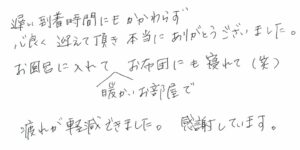 遅い到着時間にもかかわらず
心良く迎えて頂き本当にありがとうございました。
お風呂に入れて お布団にも寝れて(笑)
暖かいお部屋で
疲れが軽減できました。 感謝しています。